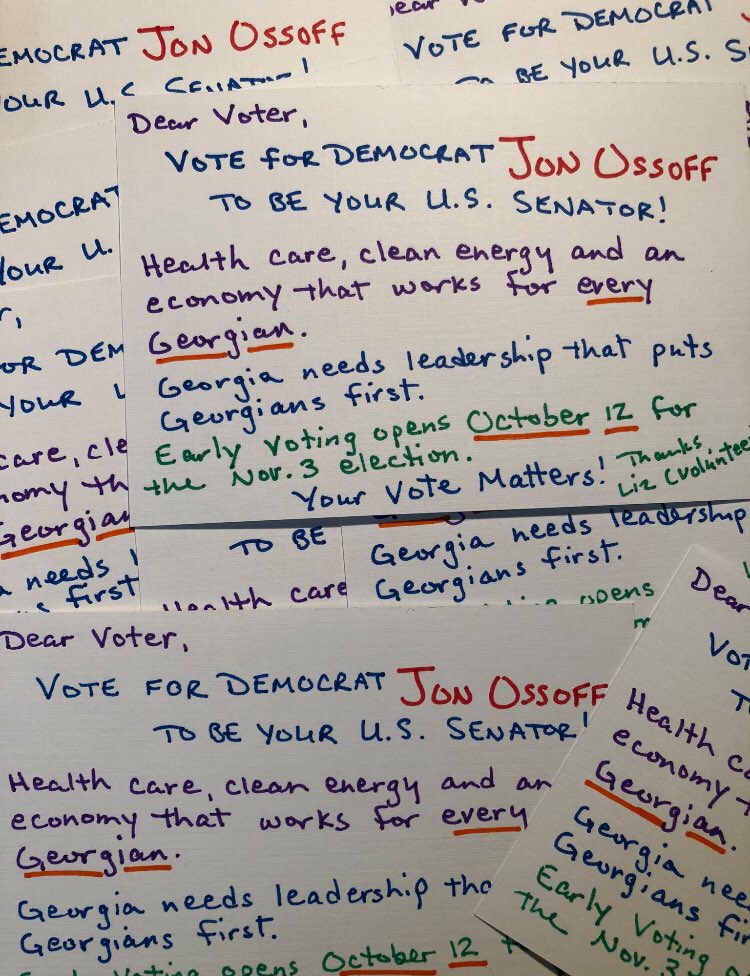 EMOCRAT JON OSSOFF
OUR U.S. SENATOR!
ear
VOTE FOR DEMOCRA
TO BE YOUR U.S. S
Dear Voter,
VOTE for DEMOCRAT JON OSSOFF
TO BE YOUR U.S. SENATOR!
Health care, clean energy and an
economy that works for every
Georgian.
Georgia needs leadership that puts
Georgians first.
Early Voting opens October 12 for
the Nov. 3 election.
Your Vote Matters!
Thanks
Liz (Voluntee
EMOCRAT
YOUR U.
r,
OR DEM
YOUR
care, cle
nomy th
Georgian
needs
first
TO BE
Health care
Georgia needs leadership
Georgians first.
opens
Dear Voter,
VOTE FOR DEMOCRAT JON OSSOFF
TO BE YOUR U.S. SENATOR!
Health care, clean energy and an
economy that works for every
Georgian.
Georgia needs leadership tha
Georgians first.
Early Voting opens October 12
Dear
VOT
Health ca
economy t
Georgian.
Georgia nee
Georgians fir
Early Voting
the Nov. 3